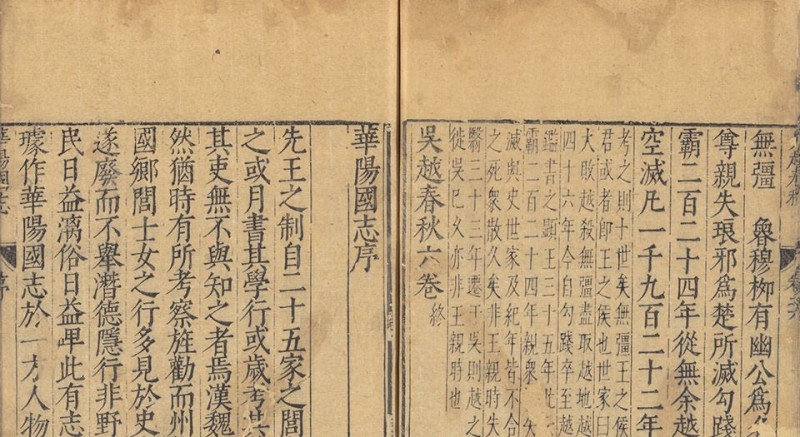 無彊　魯穆柳有幽公爲
尊親失琅邪爲楚所滅勾踐
霸二百二十四年從無余越
空滅凡一千九百二十二年
考之則十世矣無彊王之侯
君或者卽王之侯也世家曰
大敗越殺無彊盡取越地越
四十六年今自勾踐卒至越
鑑書之顯王三十五年
霸二百二十四年親衆失
滅與史世家及紀年皆不合
之死衆散久矣非王親時失
翳三十三年遷于吳則越之
徙吳已久亦非王親時也
吳越春秋六卷 終
華陽國志序
先王之制自二十五家之閭
之或月書其學行或歲考其
其吏無不與知之者焉漢魏
然猶時有所考察旌勸而州
國鄉閭士女之行多見於史
遂廢而不舉潛德隱行非野
民日益漓俗日益卑此有志
璩作華陽國志於一方人物
華陽國志 序